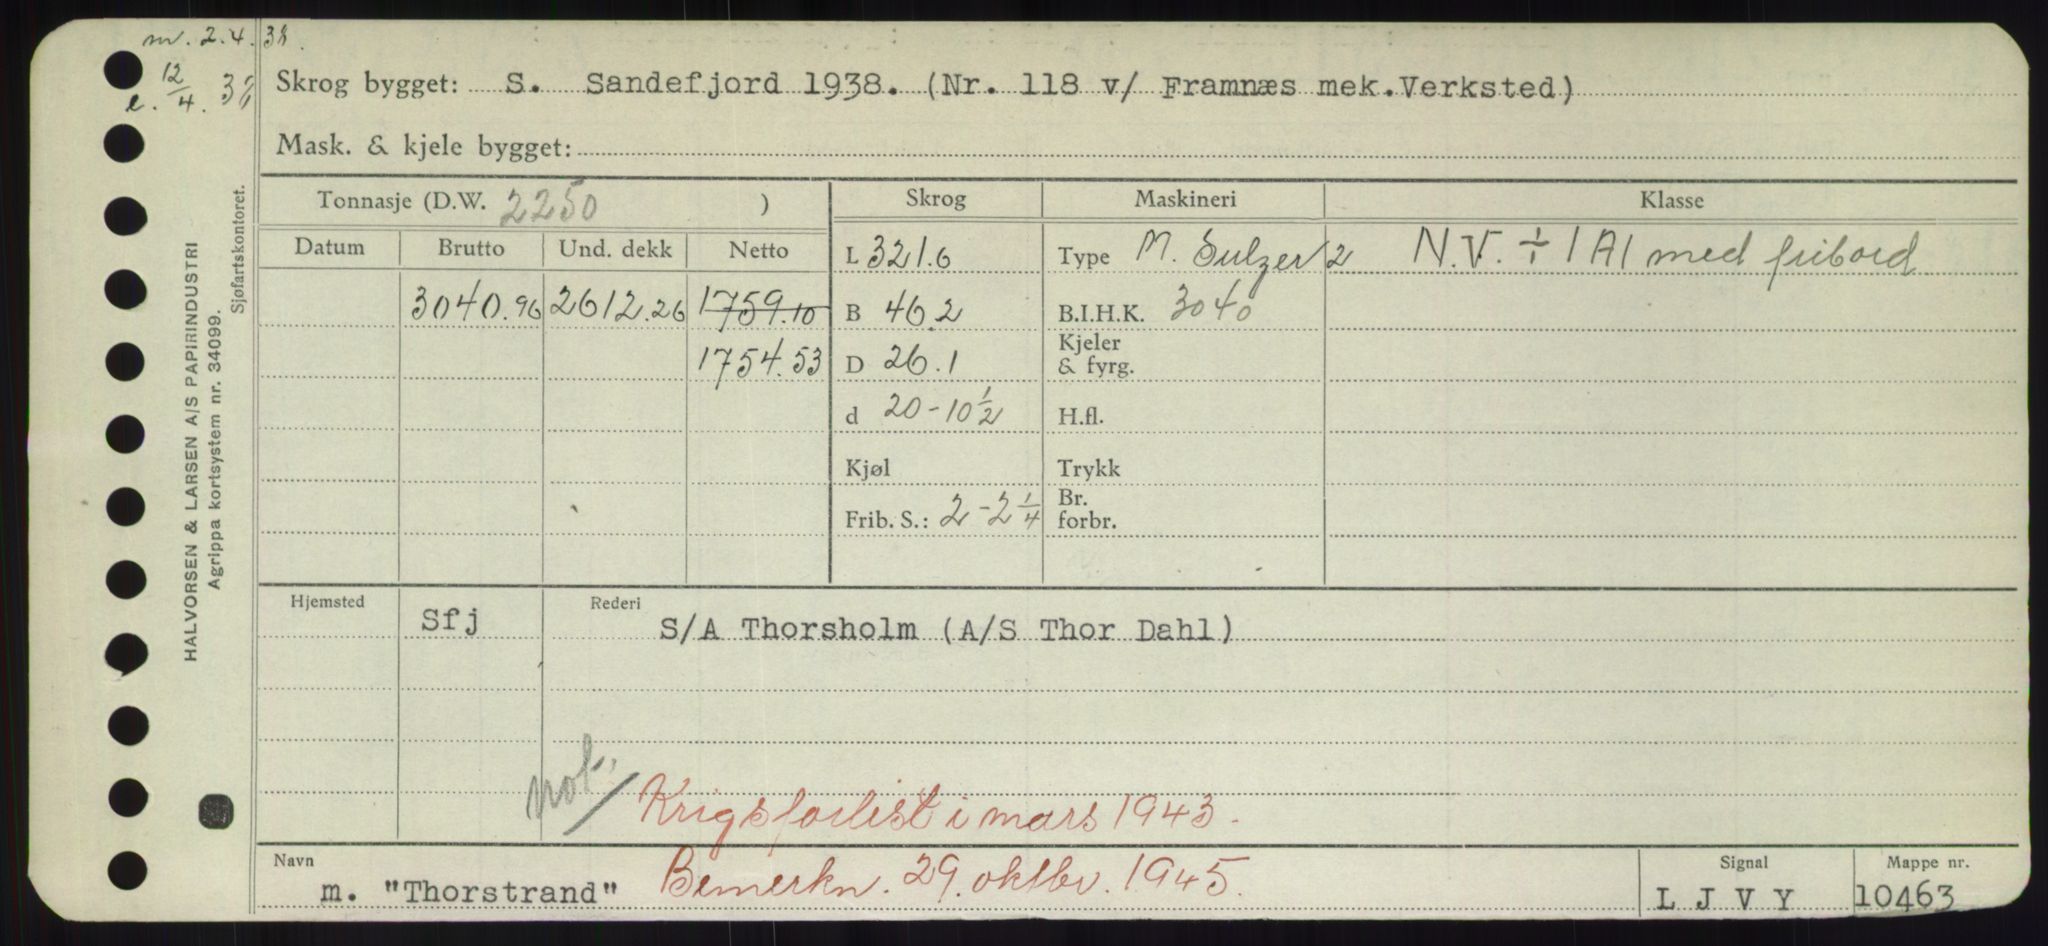 m. 2.4.38.
e. 12/4. 38
Skrog bygget: S. Sandefjord 1938. (Nr. 118 v/ Framnæs mek.Verksted)
Mask. & kjele bygget:
Tonnasje (D.W. 2250 )
Skrog
Maskineri
Klasse
Datum
Brutto
Und. dekk
Netto
L 321.6
Type M. Sulzer 2
N.V. ÷ 1A1 med fribord
3040.96
2612.26
1759.10
B 46.2
B.I.H.K. 3040
1754.53
D 26.1
Kjeler
& fyrg.
d 20-10 1/2
H.fl.
Kjøl
Trykk
Frib. S.: 2-2 1/4
Br.
forbr.
Hjemsted
Sfj
Rederi
S/A Thorsholm (A/S Thor Dahl)
not. / Krigsforlist i mars 1943.
Navn
m. "Thorstrand"
Bemerkn. 29. oktbr. 1945.
Signal
L J V Y
Mappe nr.
10463
HALVORSEN & LARSEN A/S PAPIRINDUSTRI
Agrippa kortsystem nr. 34099.
Sjøfartskontoret.